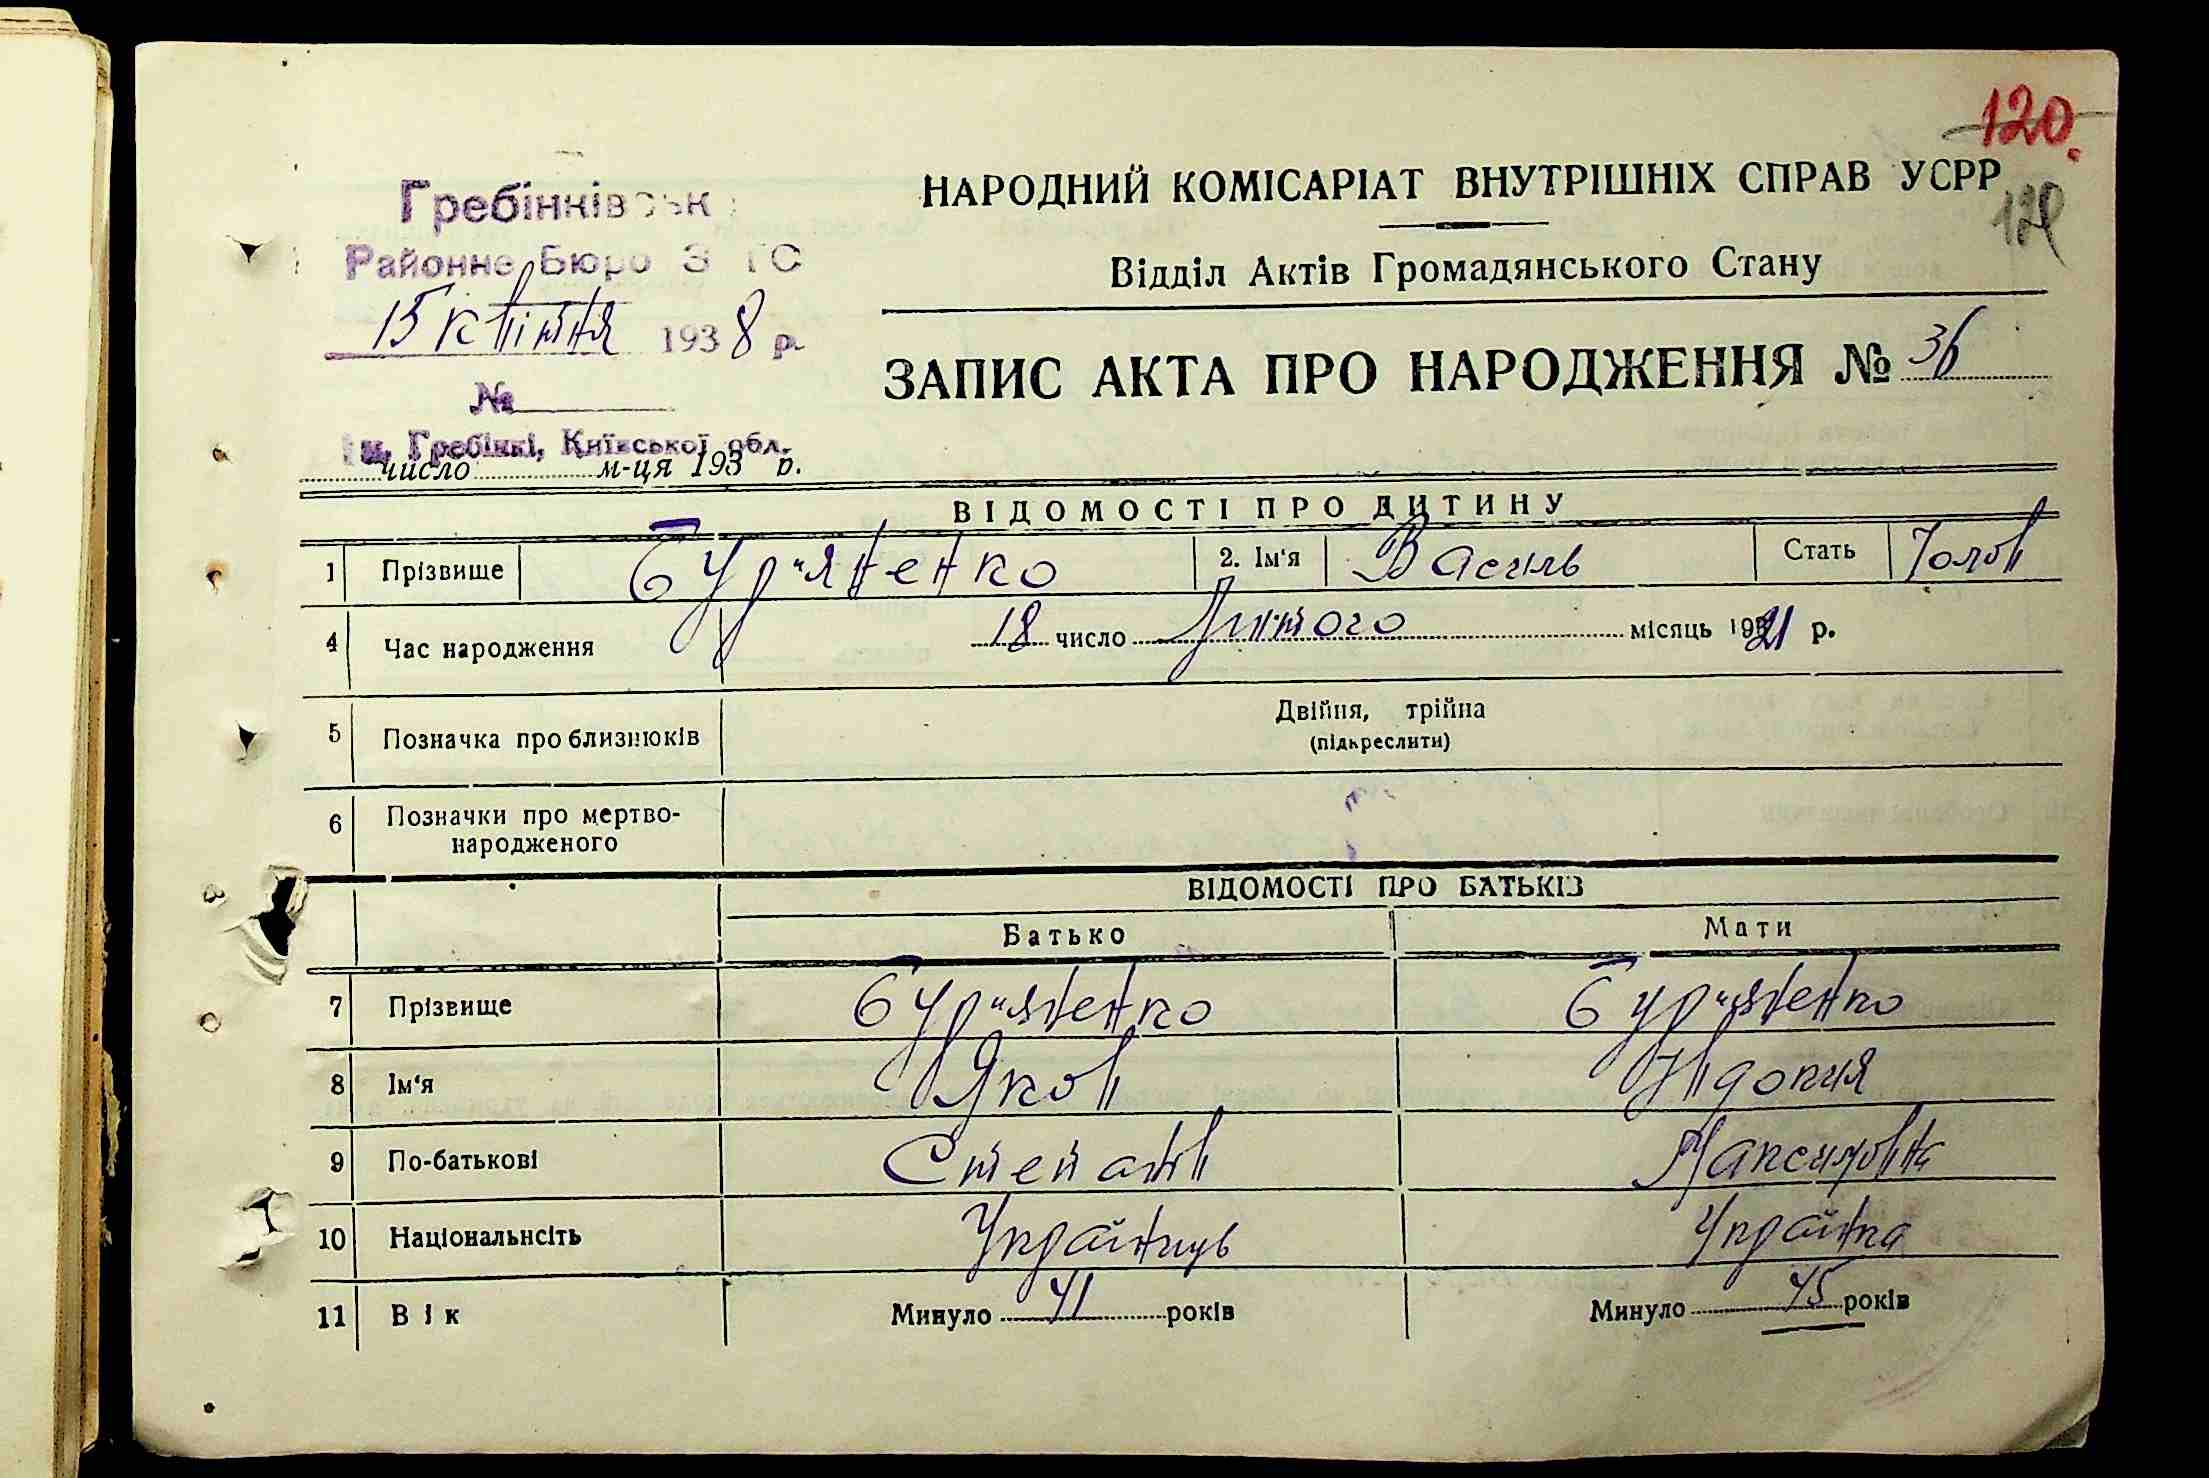 120.
Гребінківськ
НАРОДНИЙ КОМІСАРІАТ ВНУТРІШНІХ СПРАВ УСРР
Районне Бюро З ГС
Відділ Актів Громадянського Стану
15 квітня 1938 р.
ЗАПИС АКТА ПРО НАРОДЖЕННЯ № 36
№
м. Гребінкі, Київської обл.
число м-ця 193 р.
ВІДОМОСТІ ПРО ДИТИНУ
1 Прізвище Бур"яненко 2. Ім'я Василь Стать Чолов
4 Час народження 18 число Лютого місяць 1921 р.
5 Позначка про близнюків Двійня, трійна
(підкреслити)
6 Позначки про мертво-
народженого
ВІДОМОСТІ ПРО БАТЬКІВ
Батько Мати
7 Прізвище Бур"яненко Бур"яненко
8 Ім'я Яков
9 По-батькові Степанов Максимовна
10 Національнсіть Українць Українка
11 Вік Минуло 41 років Минуло 45 років